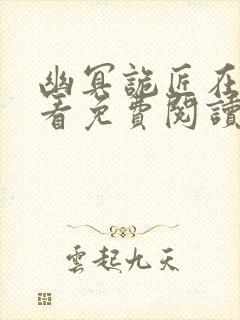 幽冥詭匠在
看免費閱讀
雲起九天